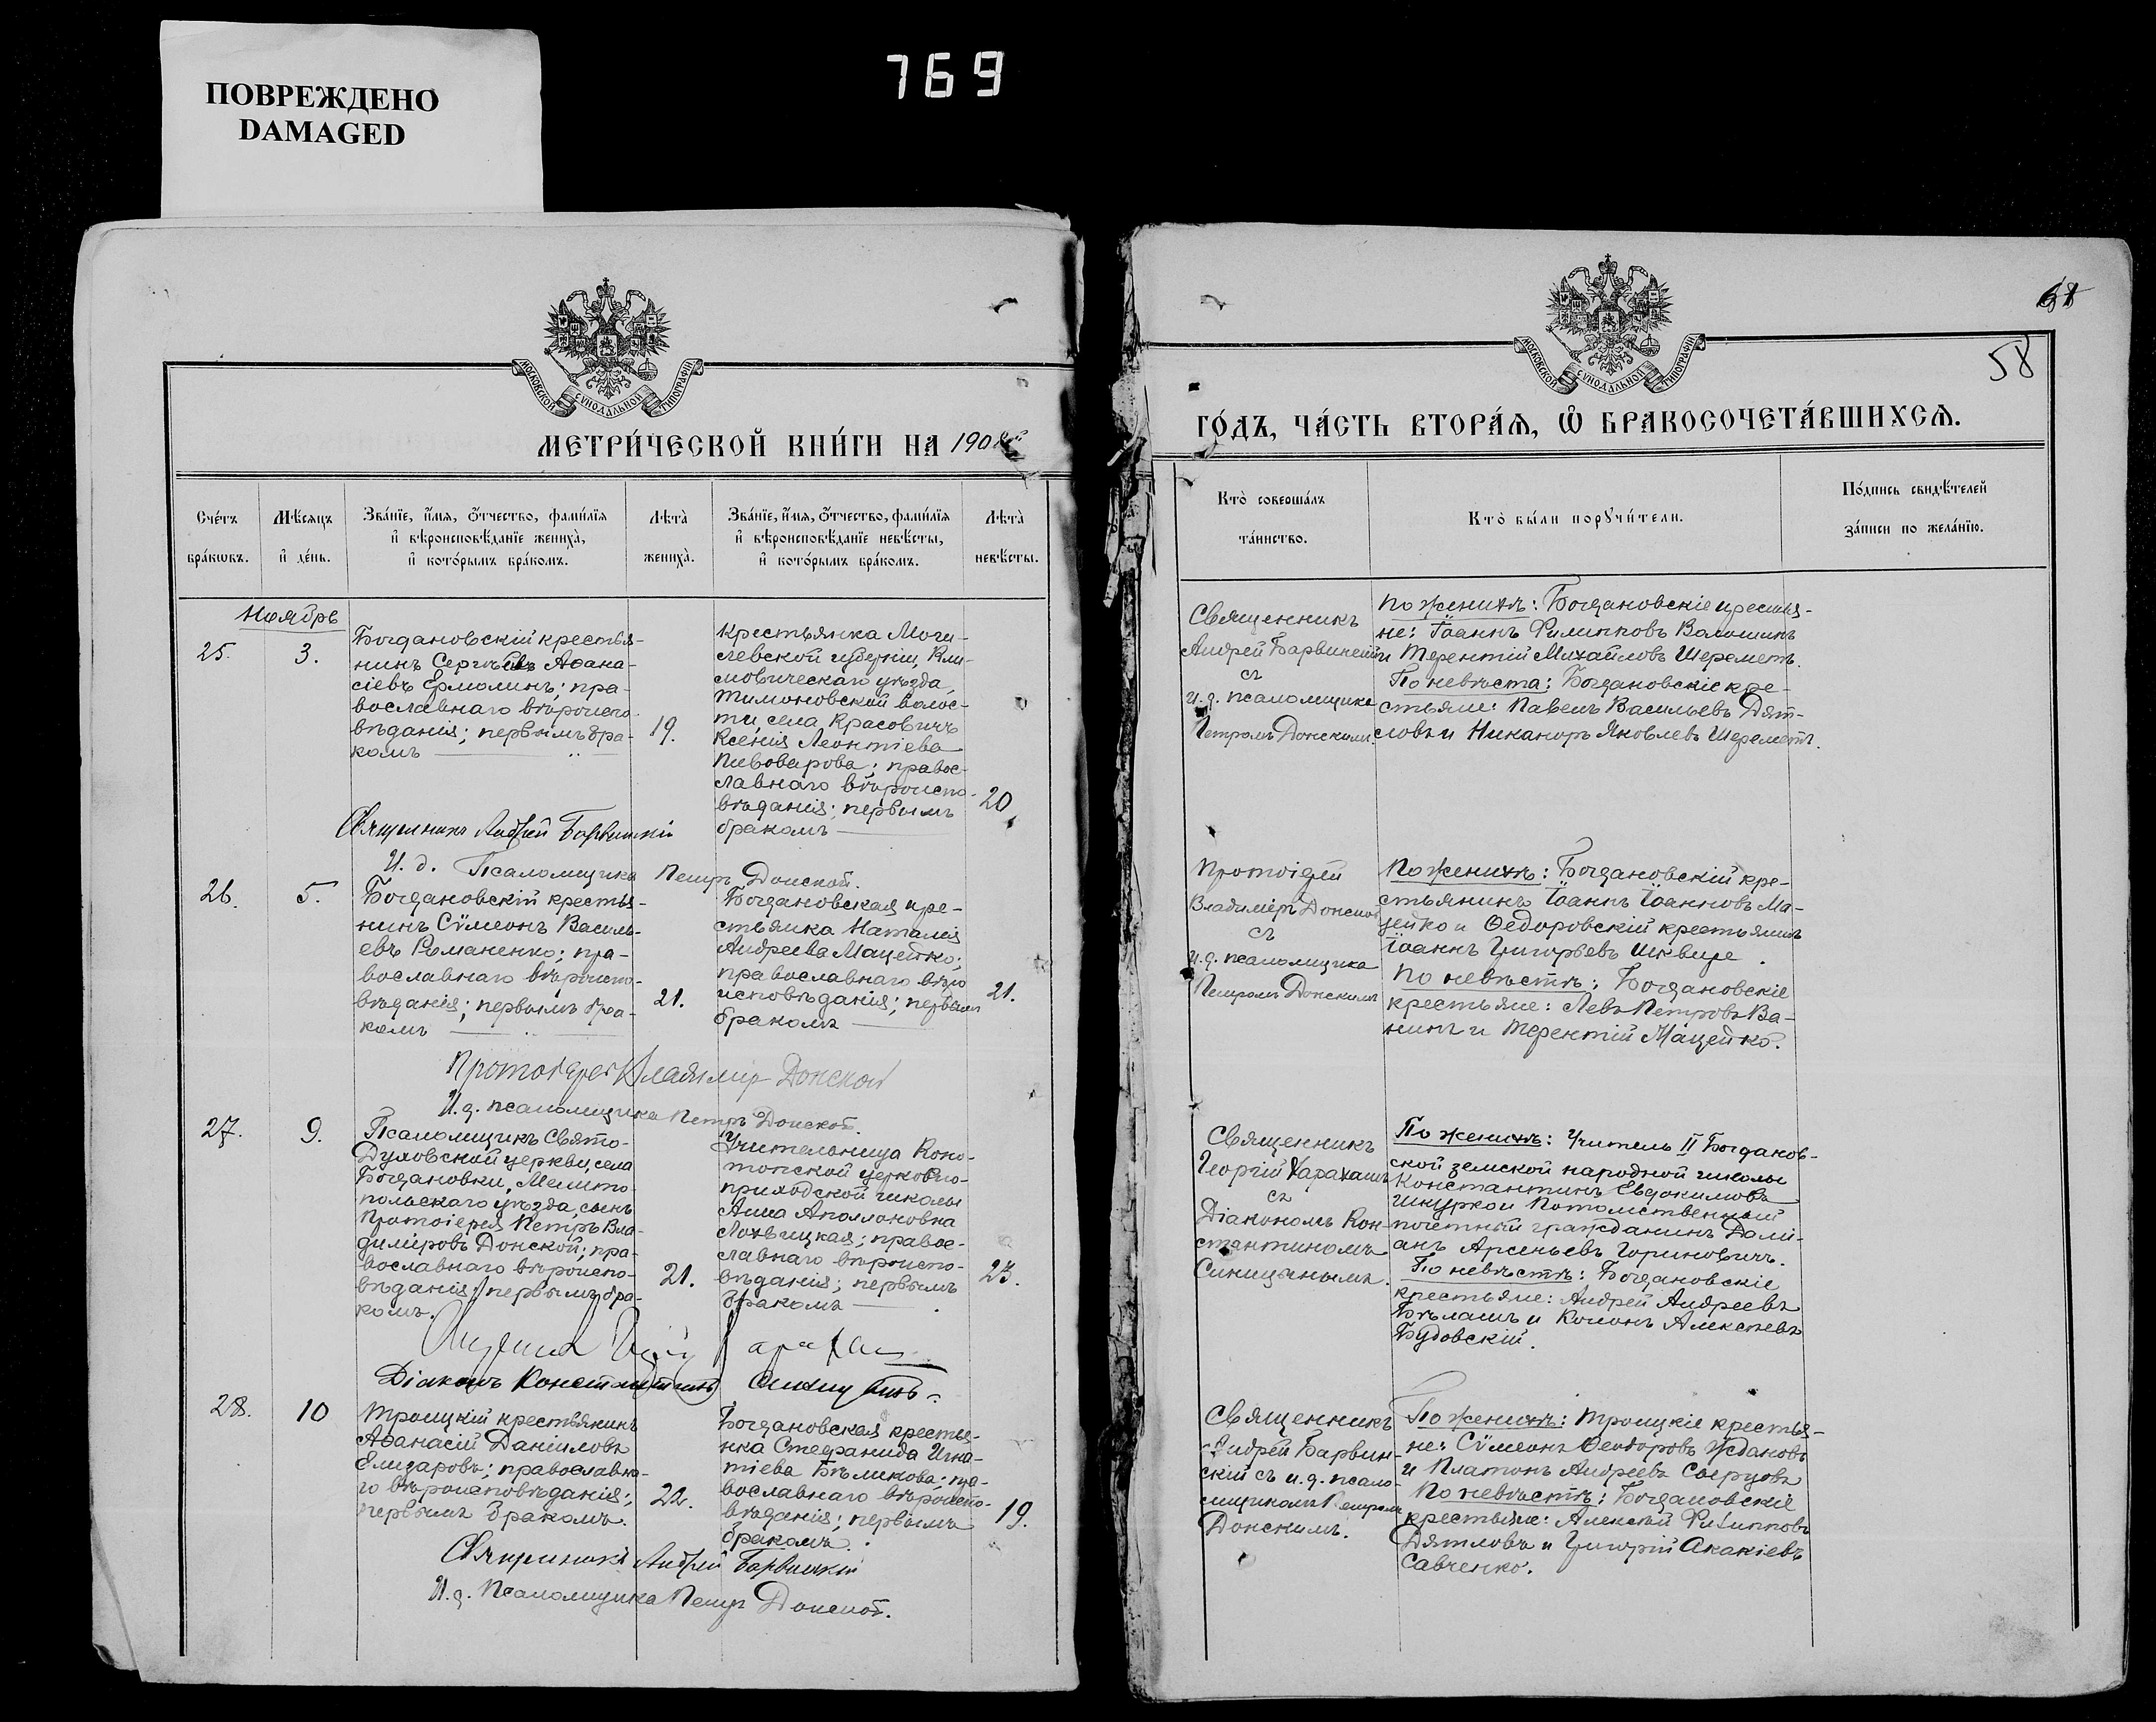 ПОВРЕЖДЕНО
DAMAGED
769
МОСКОВСКОЙ СѴНОДАЛЬНОЙ ТИПОГРАФІИ
МЕТРИ́ЧЕСКОЙ КНИ́ГИ НА 190
Сче́тъ бра́кωвъ.
Мѣ́сяцъ и҆ де́нь.
Зва́нїе, и҆́мя, ѻ҆́тчество, фами́лїя
и҆ вѣроисповѣ́данїе жениха̀,
и҆ кото́рымъ бра́комъ.
Лѣта̀ жениха̀.
Зва́нїе, и҆́мя, ѻ҆́тчество, фами́лїя
и҆ вѣроисповѣ́данїе невѣ́сты,
и҆ кото́рымъ бра́комъ.
Лѣта̀ невѣ́сты.
Ноябрь
25.
3.
Богдановскій крестья-
нинъ Сергѣевъ Аѳана-
сіевъ Ермолинъ; пра-
вославнаго вѣроиспо-
вѣданія; первымъ бра-
комъ
19.
Крестьянка Моги-
левской губерніи, Кли-
мовическаго уѣзда,
Тимоновской волос-
ти, села Красовичъ
Ксенія Леонтіева
Пивоварова; правос-
лавнаго вѣроиспо-
вѣданія; первымъ
бракомъ
20
Священникъ Андрей Барвинскій
И. д. Псаломщика Петръ Донской.
26.
5.
Богдановскій крестья-
нинъ Сѵмеонъ Василь-
евъ Романенко; пра-
вославнаго вѣроиспо-
вѣданія; первымъ бра-
комъ
21.
Богдановская кре-
стьянка Наталія
Андреева Мацейко;
православнаго вѣро
исповѣданія; первымъ
бракомъ
21.
Протоіерей Владимір Донской
И. д. псаломщика Петръ Донской.
27.
9.
Псаломщикъ Свято-
Духовской церкви, села
Богдановки, Мелито-
польскаго уѣзда, сынъ
Протоіерея Петръ Вла-
диміровъ Донской; пра-
вославнаго вѣроиспо-
вѣданія; первымъ бра-
комъ.
21.
Учительница Коно-
топской церковно-
приходской школы
Анна Аполлоновна
Лохвицкая; правос-
лавнаго вѣроиспо-
вѣданія; первымъ
бракомъ
23.
Діаконъ Константинъ Синицынъ.
28.
10
Троицкій крестьянинъ
Аѳанасій Даніиловъ
Елизаровъ; православна-
го вѣроисповѣданія;
первымъ бракомъ.
22.
Богдановская крестья-
нка Стефанида Игна-
тіева Бѣликова; пра-
вославнаго вѣроиспо-
вѣданія; первымъ
бракомъ.
19.
Священникъ Андрей Барвинскій
И. д. Псаломщика Петръ Донской.
58
МОСКОВСКОЙ СѴНОДАЛЬНОЙ ТИПОГРАФІИ
ГО́ДЪ, ЧА́СТЬ ВТОРА́Я, Ѽ БРАКОСОЧЕТА́ВШИХСЯ.
Кто̀ соверша́лъ
та́инство.
Кто̀ бы́ли порꙋчи́тели.
По́дпись свидѣ́телей
за́писи по жела́нїю.
Священникъ
Андрей Барвинскій
съ
и. д. псаломщика
Петромъ Донскимъ.
По женихѣ: Богдановскіе крестья-
не: Іоаннъ Филипповъ Валошинъ
и Терентій Михайловъ Шереметъ.
По невѣста: Богдановскіе кре-
стьяне: Павелъ Васильевъ Дят-
ловъ и Никаноръ Яковлевъ Шереметъ.
Протоіерей
Владиміръ Донской
съ
и. д. псаломщика
Петромъ Донскимъ
По женихѣ: Богдановскій кре-
стьянинъ Іоаннъ Іоанновъ Ма-
цейко и Ѳедоровскій крестьянинъ
Іоаннъ Григорьевъ Шквире.
По невѣстѣ: Богдановскіе
крестьяне: Левъ Петровъ Ва-
нинъ и Терентій Мацейко.
Священникъ
Георгій Харахашъ
съ
Діакономъ Кон-
стантиномъ
Синицынымъ.
По женихѣ: Учитель II Богданов-
ской земской народной школы
Константинъ Евдокимовъ
Шкурко и Потомственный
почетный гражданинъ Домі-
анъ Арсеньевъ Гориновичъ.
По невѣстѣ: Богдановскіе
крестьяне: Андрей Андреевъ
Бѣлашъ и Кононъ Алексѣевъ
Будовскій.
Священникъ
Андрей Барвин-
скій съ и. д. псало-
мщикомъ Петромъ
Донскимъ.
По женихѣ: Троицкіе крестья-
не: Сѵмеонъ Ѳеодоровъ Ждановъ
и Платонъ Андреевъ Сверцовъ
По невѣстѣ: Богдановскіе
крестьяне: Алексѣй Филипповъ
Дятловъ и Григорій Акакіевъ
Савченко.